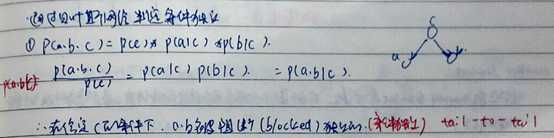 通过贝叶斯网络判定条件独立
① p(a.b.c) = p(c)*p(a|c)*p(b|c).
c
p(a.b|c) p(a.b.c)/p(c) = p(a|c) p(b|c). = p(a.b|c).
a b
∴ 在给定c的条件下. a.b被阻断 (blocked) 独立的. (条件独立) tail-to-tail